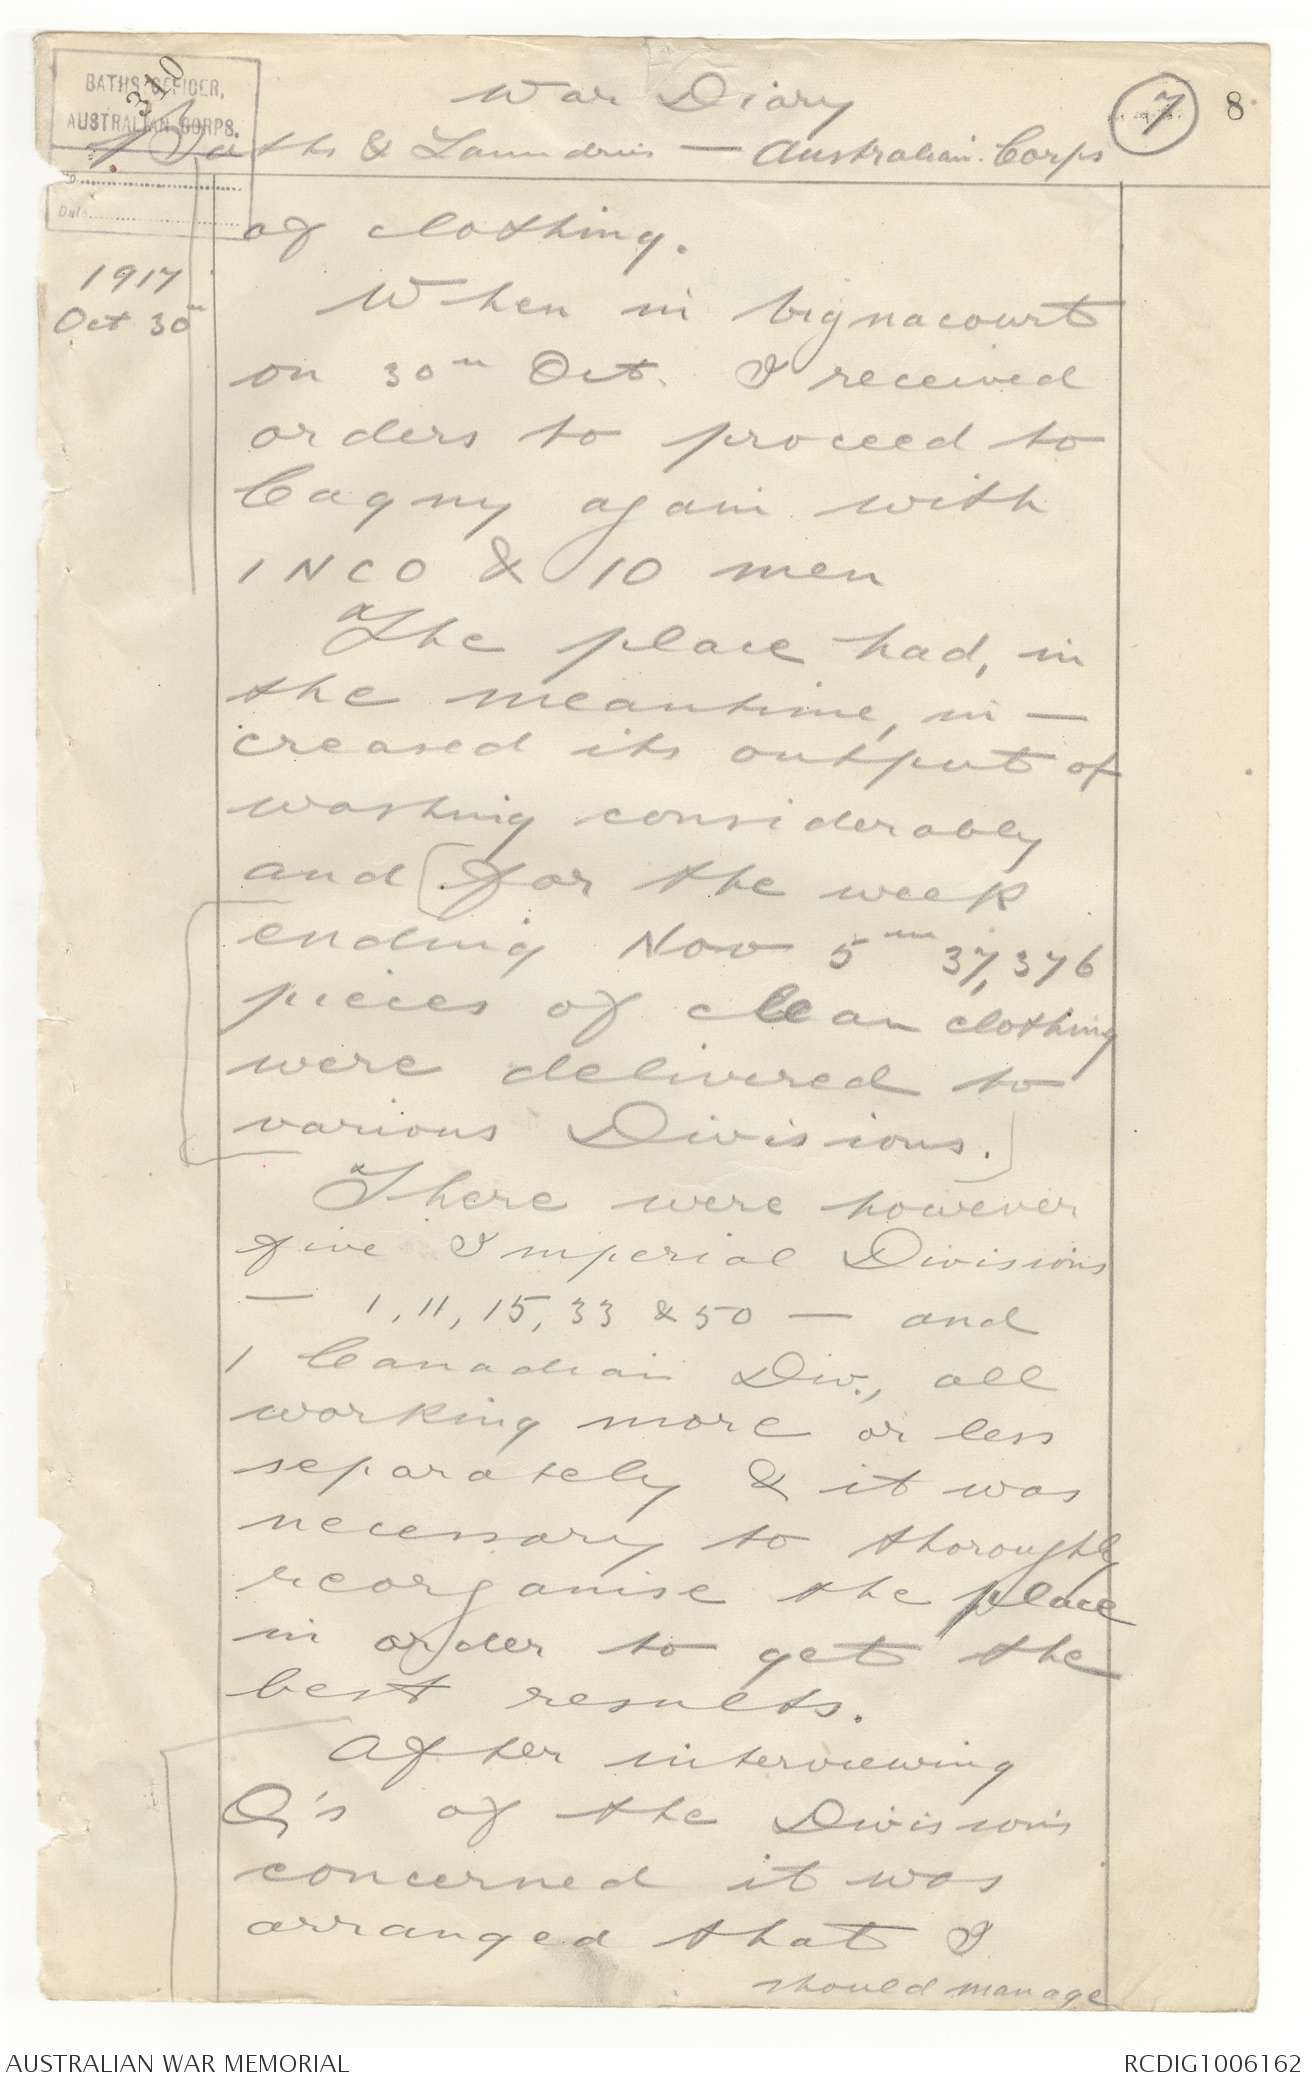 BATHS OFFICER,
AUSTRALIAN CORPS.
310
Date
War Diary
Baths & Laundries — Australian Corps
7
8
of clothing.
1917
Oct 30th
When in Vignacourt
on 30th Oct. I received
orders to proceed to
Cagny again with
1 NCO & 10 men
The place had, in
the meantime, in-
creased its output of
washing considerably
and (for the week
ending Nov 5th 37,376
pieces of clean clothing
were delivered to
various Divisions.)
There were however
five Imperial Divisions
— 1, 11, 15, 33 & 50 — and
1 Canadian Div., all
working more or less
separately & it was
necessary to thoroughly
reorganise the place
in order to get the
best results.
After interviewing
Q's of the Divisions
concerned it was
arranged that I
should manage
AUSTRALIAN WAR MEMORIAL
RCDIG1006162